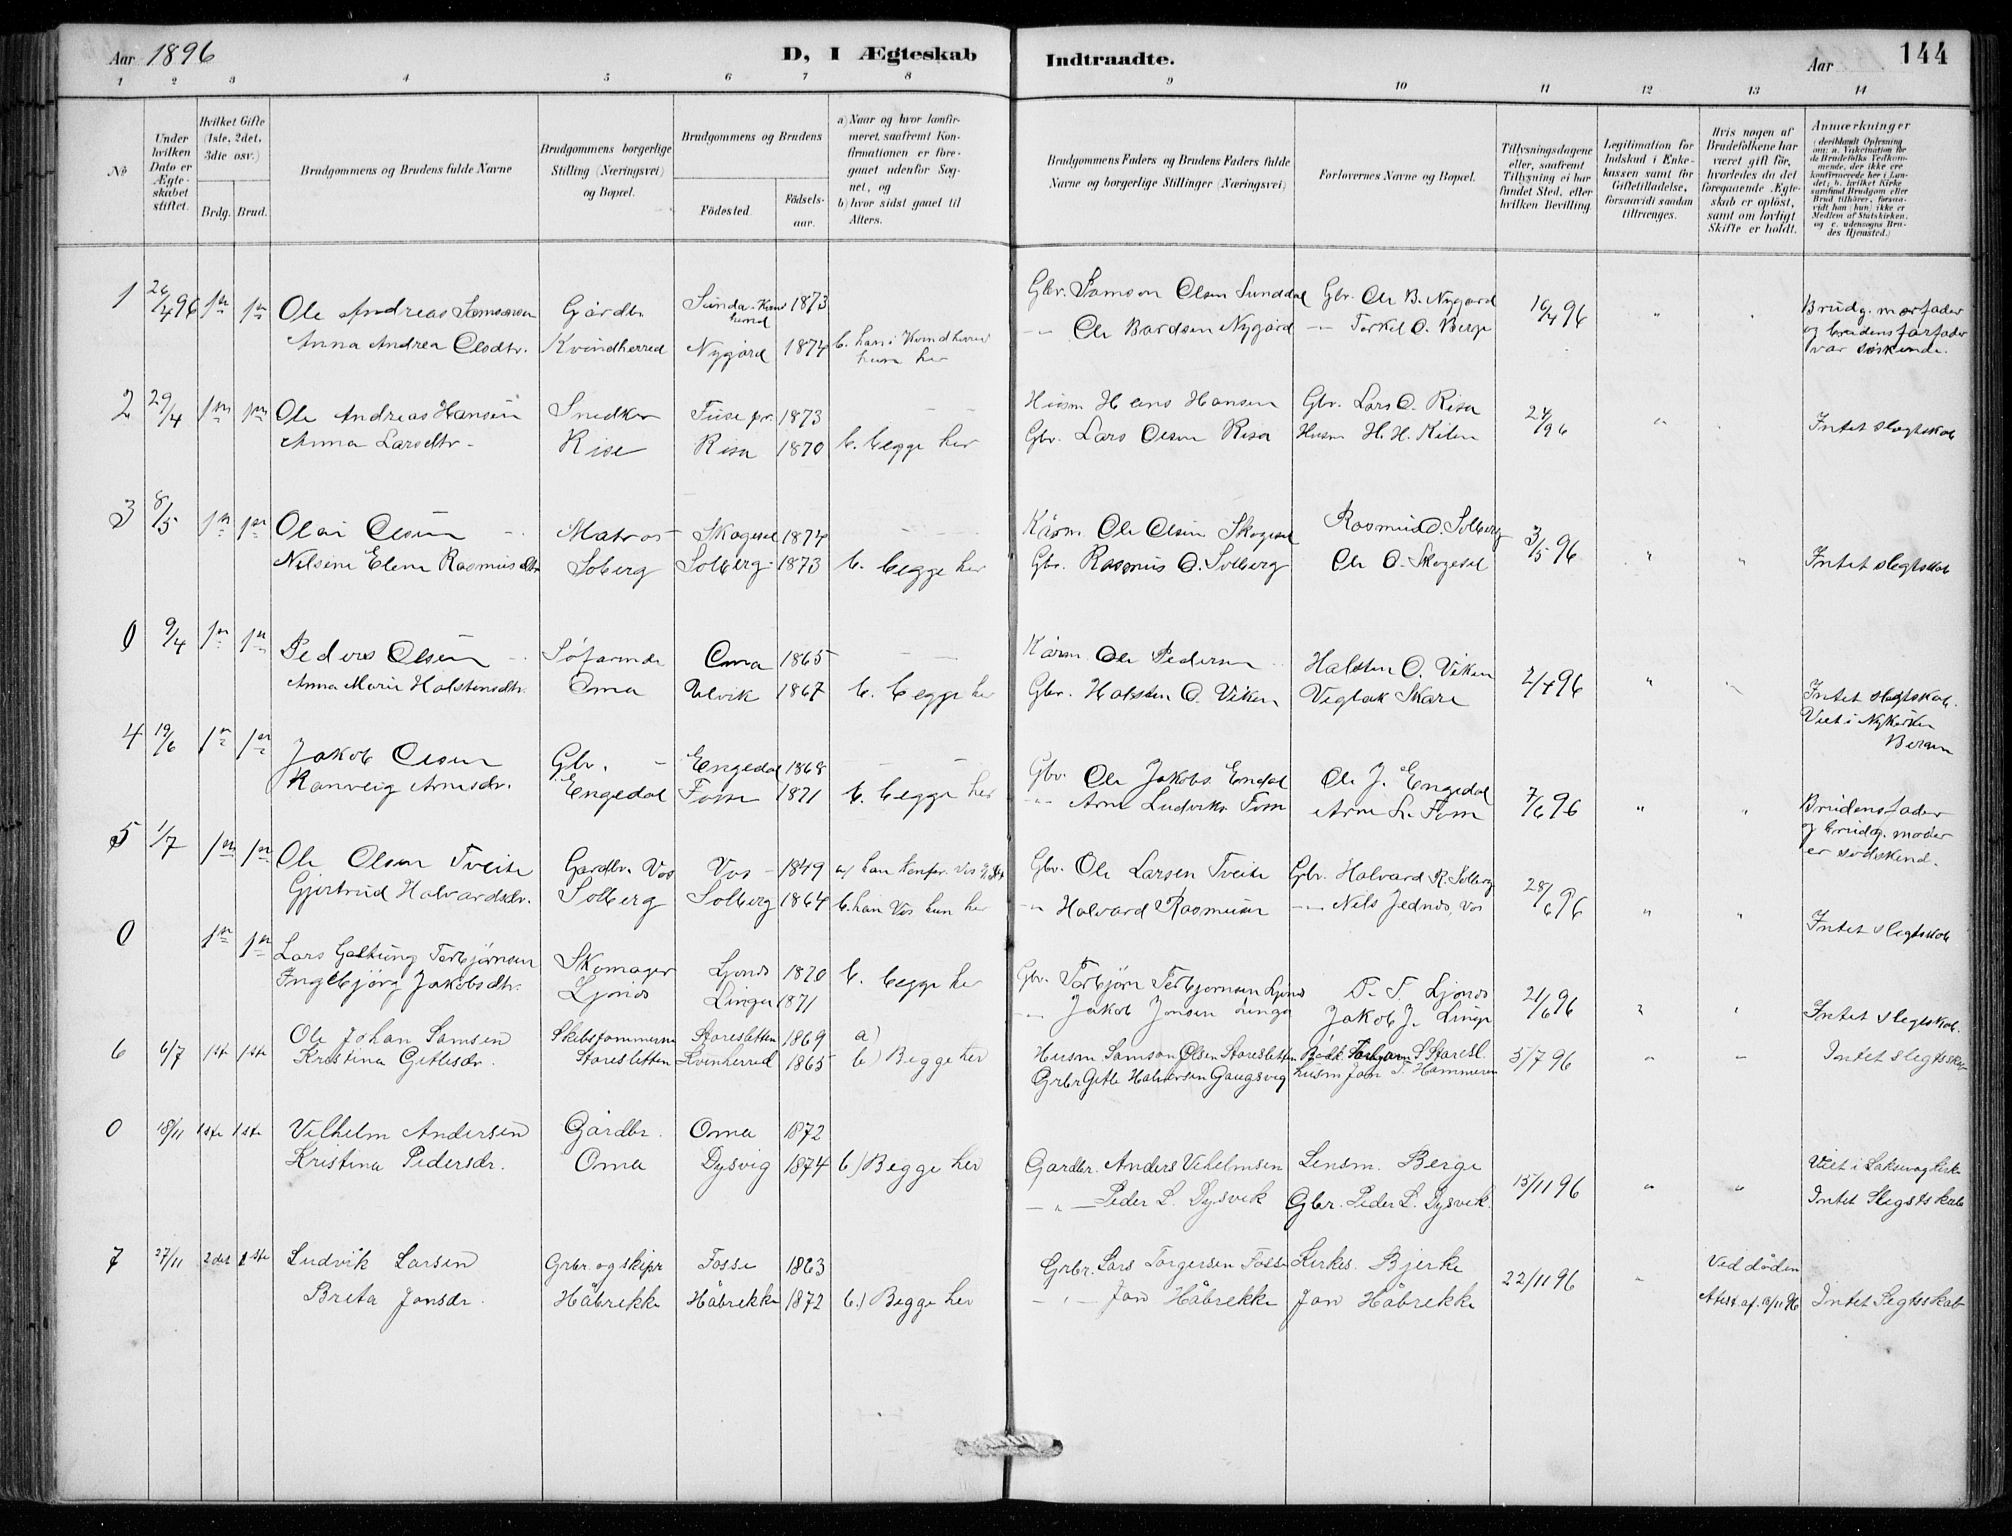 Aar 1896 D, I Ægteskab Indtraadte. Aar 144
1 2 3 4 5 6 7 8 9 10 11 12 13 14
No
Under hvilken Dato er Ægteskabet stiftet.
Hvilket Gifte (1ste, 2det, 3die osv.)
Brdg. Brud.
Brudgommens og Brudens fulde Navne
Brudgommens borgerlige Stilling (Næringsvei) og Bopæl.
Brudgommens og Brudens
Fødested. Fødselsaar.
a) Naar og hvor konfirmeret, saafremt Konfirmationen er foregaaet udenfor Sognet, og
b) hvor sidst gaaet til Alters.
Brudgommens Faders og Brudens Faders fulde Navne og borgerlige Stillinger (Næringsvei)
Forlovernes Navne og Bopæl.
Tillysningsdagene eller, saafremt Tillysning ei har fundet Sted, efter hvilken Bevilling.
Legitimation for Indskud i Enkekassen samt for Giftetilladelse, forsaavidt saadan tiltrænges.
Hvis nogen af Brudefolkene har været gift før, hvorledes da det foregaaende Ægteskab er opløst, samt om lovligt Skifte er holdt.
Anmærkninger (deriblandt Oplysning om: a. Vakcination for de Brudefolks Vedkommende, der ikke ere konfirmerede her i Landet; b. hvilket Kirkesamfund Brudgom eller Brud tilhører, forsaavidt han (hun) ikke er Medlem af Statskirken, og c. udensogns Brudes Hjemsted.)
1 26/4 96 1ste 1ste Ole Andreas Samsonsen Gårdbr. Sunda. Kvindherred 1873 Gbr. Samson Olsen Sunddal Gbr. Ole B. Nygård 19/4 96 " Brudg. morfader
Anna Andrea Olsdtr. Kvindherred Nygård 1874 b. han i Kvindherred hun her -"- Ole Bårdsen Nygård -"- Torkel O. Berge og brudens farfader
var søskende.
2 29/4 1ste 1ste Ole Andreas Hansen Snedker Fuse pr. 1873 Husm Hans Hansen Gbr. Lars O. Risa 24/96 "
Anna Larsdtr. Rise Risa 1870 b. begge her Gbr. Lars Olsen Risa Husm H. H. Kilen Intet slegtskab
3 8/5 1ste 1ste Olai Olsen Matros Skogesel 1874 Kårm Ole Olsen Skogesel Rasmus O. Solberg 3/5 96 " "
Nilsine Elene Rasmusdtr Soberg Solberg 1873 b. begge her Gbr. Rasmus O. Solberg Ole O. Skogesel Intet slegtskab
0 9/4 1ste 1ste Peders Olsen Søfarende Oma 1865 Kårm Ole Pedersen Halsten O. Viken 2/4 96 "
Anna Marie Halstensdtr. Oma Ulvik 1867 b. begge her Gbr. Halsten O. Viken Viglak Skare Intet slegtskab.
Viet i Nykirken
Bergen
4 19/6 1ste 1ste Jakob Olsen Gbr. Engedal 1868 Gbr. Ole Jakobs. Endal Ole J. Engedal 7/6 96 " "
Ranveig Arnesdr. Engedal Fosse 1871 b. begge her -"- Arne Ludviks Fosse Arne L. Fosse Brudens fader
og brudg. moder
er sødskend.
5 1/7 1ste 1ste Ole Olsen Tveite Gardbr. Vos Vos 1849 a) han konfir. Vos Gbr. Ole Larsen Tveite Gbr. Halvard R. Solberg 28/6 96 " "
Gjertrud Halvardsdr. Solberg Solberg 1864 b. han Vos hun her -"- Halvard Rasmusen -"- Nils Jednos, Vos Intet slegtskab
0 1ste 1ste Lars Galtung Torbjørnsen Skomager Ljonos 1870 b. begge her Gbr. Torbjørn Torbjørnsen Ljonos T. T. Ljonos 21/6 96 " "
Ingebjørg Jakobsdtr. Ljonos Linga 1871 -"- Jakob Jonsen Linga Jakob J. Linge Intet slegtskab.
6 6/7 1ste 1ste Ole Johan Samsen Skibstømmerm Staresletten 1869 a) Husm Samson Olsen Staresletten S. Staresl. 5/7 96 " " Intet slegtsskap
Kristina Gitlesdr. Staresletten Kvinherred 1865 b) Begge her Grbr Gitle Halvorsen Gaugsvig Husm Jon T. Hammeren
0 18/11 1ste 1ste Vilhelm Andersen Gårdbr. Oma 1872 Gardbr. Anders Vilhelmsen Lensm. Berge Viet i Laksevag kirke
Kristina Pedersdr. Oma Dysvig 1874 b) Begge her -"- Peder L. Dysvik Gbr. Peder L. Dysvik. 15/11 96 " " Intet Slegtsskab
7 27/11 2det 1ste Ludvik Larsen Grbr. og skipr Fosse 1863 Grbr. Lars Torgersen Fosse Kirkes. Bjerke 22/11 96 " Ved døden
Brita Jonsdr. Håbrekke Håbrekke 1872 b.) Begge her -"- Jon Håbrekke Jon Håbrekke Atest. af. 13/11 96 Intet Slegtsskab